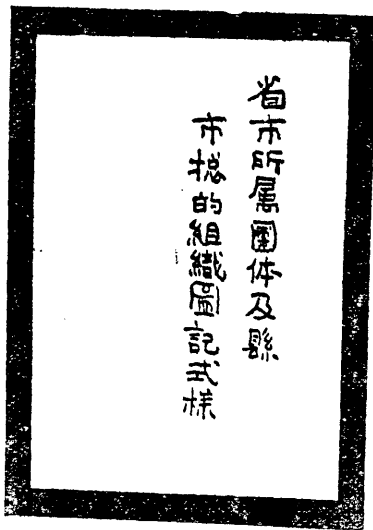 省市所属團体及縣
市揔的組織圖記式様